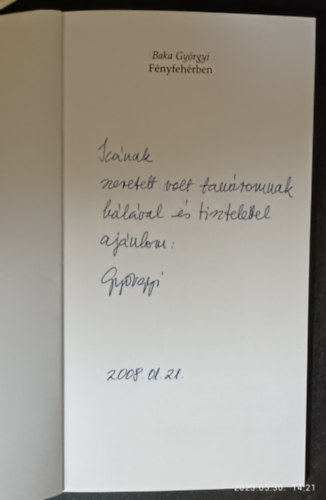 Baka Györgyi
Fényfehérben
Icának
szeretett volt tanáromnak
hálával és tisztelettel
ajánlom:
Györgyi
2008.01.21.
2023.05.30. 14:21